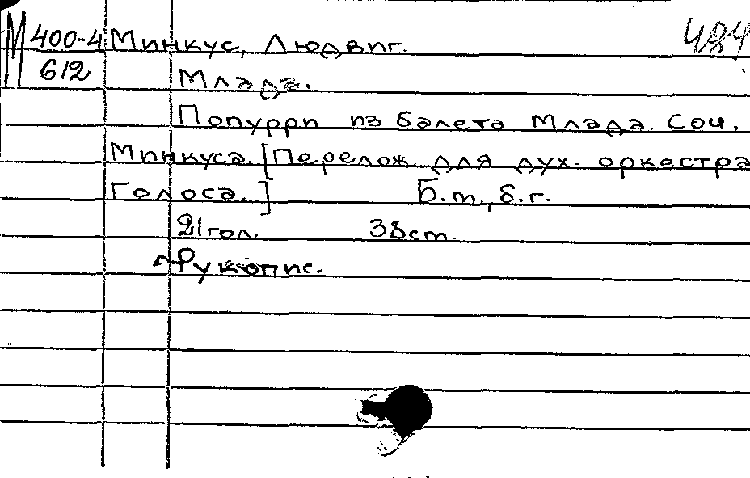 М 400-4 Минкус, Людвиг. 484
612 Млада.
Попурри из балета Млада. Соч.
Минкуса. [Перелож. для дух. оркестра
Голоса.] Б.т., б.г.
21 гол. 38 ст.
Рукопис.